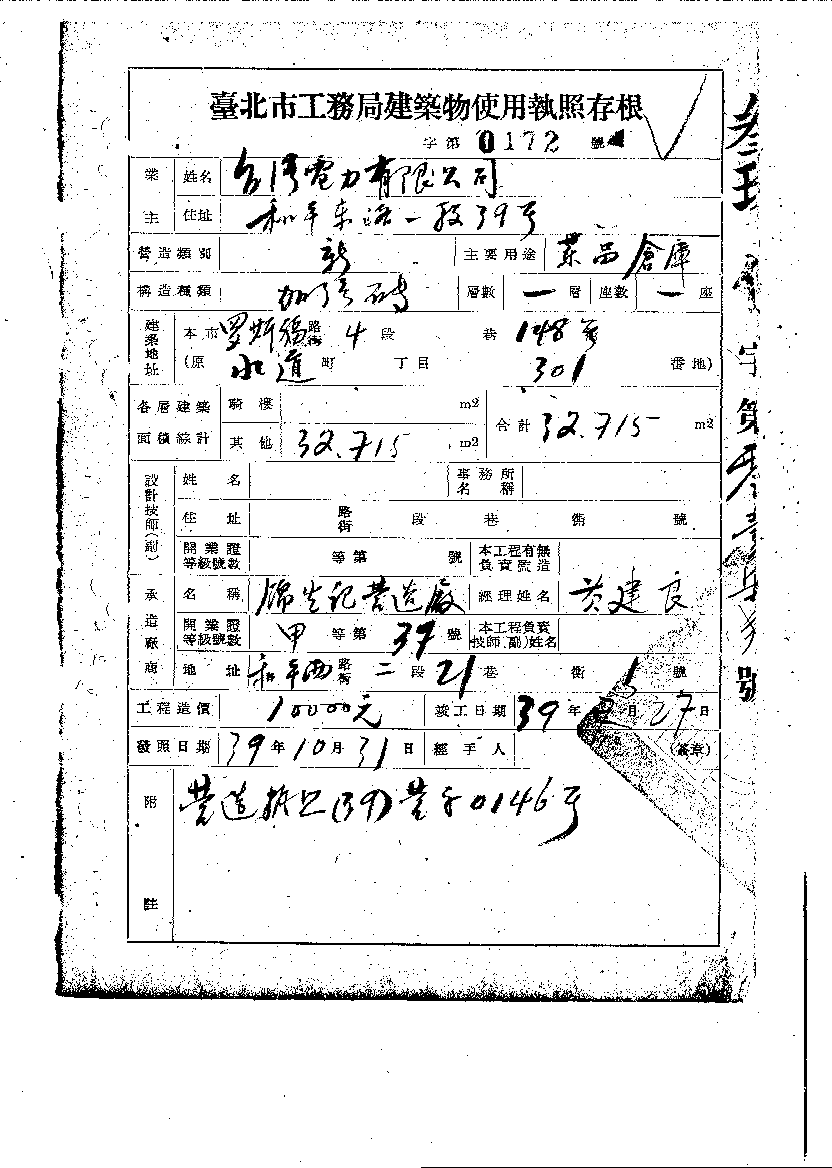 臺北市工務局建築物使用執照存根
字第 0172 號
業主 姓名 台灣電力有限公司
住址 和平東路一段39号
營造類別 新 主要用途 藥品倉庫
構造種類 加强磚 層數 一層 座數 一座
建築地址 本市 羅斯福路街 4段 巷 148号
(原 水道町 丁目 301 番地)
各層建築面積綜計 騎樓 m2 合計 32.715 m2
其他 32.715 m2
設計技師(副) 姓名 事務所名稱
住址 路街 段 巷 衖 號
開業證等級號數 等第 號 本工程有無負責監造
承造廠商 名稱 記營造廠 經理姓名 黃建良
開業證等級號數 甲等第 37 號 本工程負責技師(副)姓名
地址 和平西路街 二段 21巷 衖 號
工程造價 10000元 竣工日期 39年 月27日
發照日期 39年10月31日 經手人 (簽章)
附註 營造執照(39)營字0146号